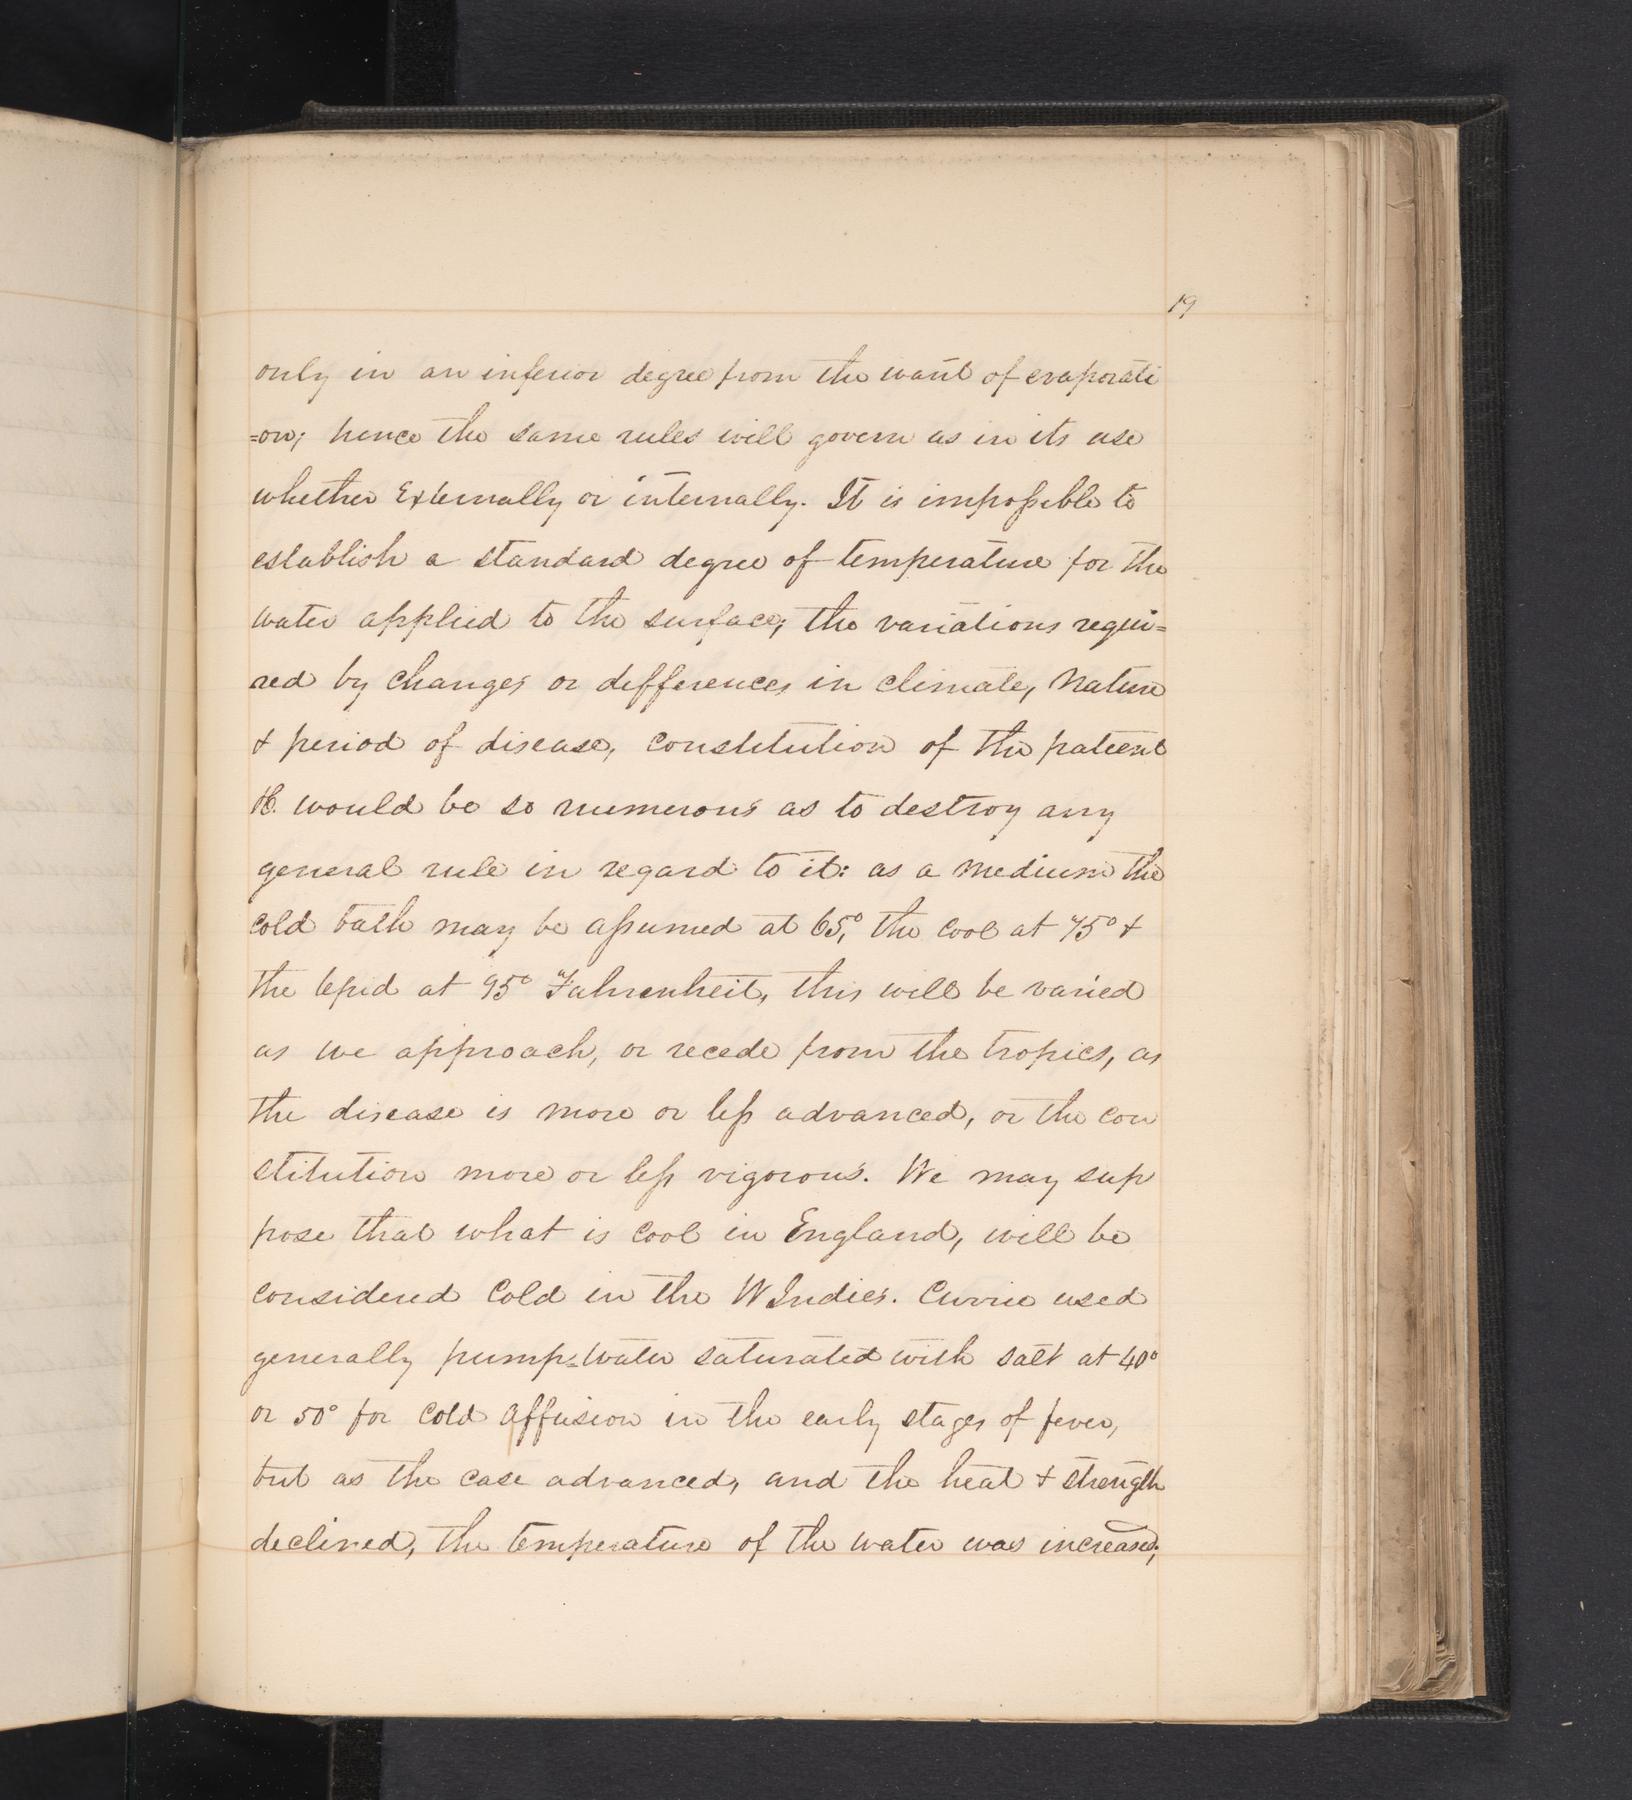 19
only in an inferior degree from the want of evaporati
=on; hence the same rules will govern as in its use
whether Externally or internally. It is impossible to
establish a standard degree of temperature for the
water applied to the surface; the variations requi=
red by changes or differences in climate, Nature
& period of disease, constitution of the patient
&c. would be so numerous as to destroy any
general rule in regard to it: as a medium the
cold bath may be assumed at 65°, the cool at 75° &
the tepid at 95° Fahrenheit, this will be varied
as we approach, or recede from the tropics, as
the disease is more or less advanced, or the con
stitution more or less vigorous. We may sup
pose that what is cool in England, will be
considered Cold in the W Indies. Currie used
generally pump=water saturated with salt at 40°
or 50° for cold affusion in the early stages of fever,
but as the case advanced, and the heat & strength
declined, the temperature of the water was increased;